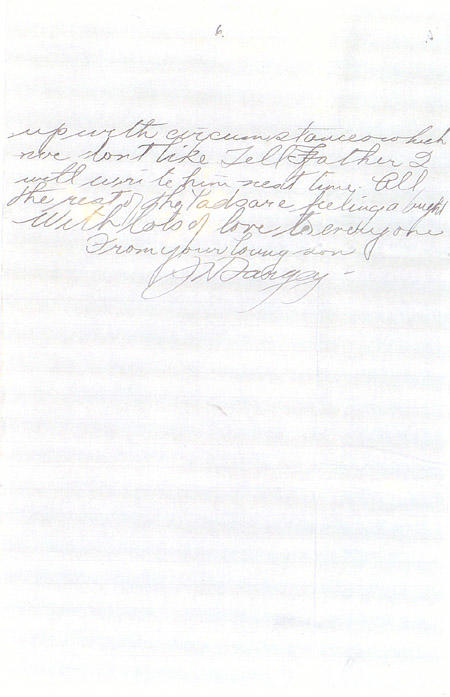 6.
up with circumstances which
we dont like Tell Father I
will write him next time. All
the rest of the lads are feeling a bright
With lots of love to everyone
From your loving son